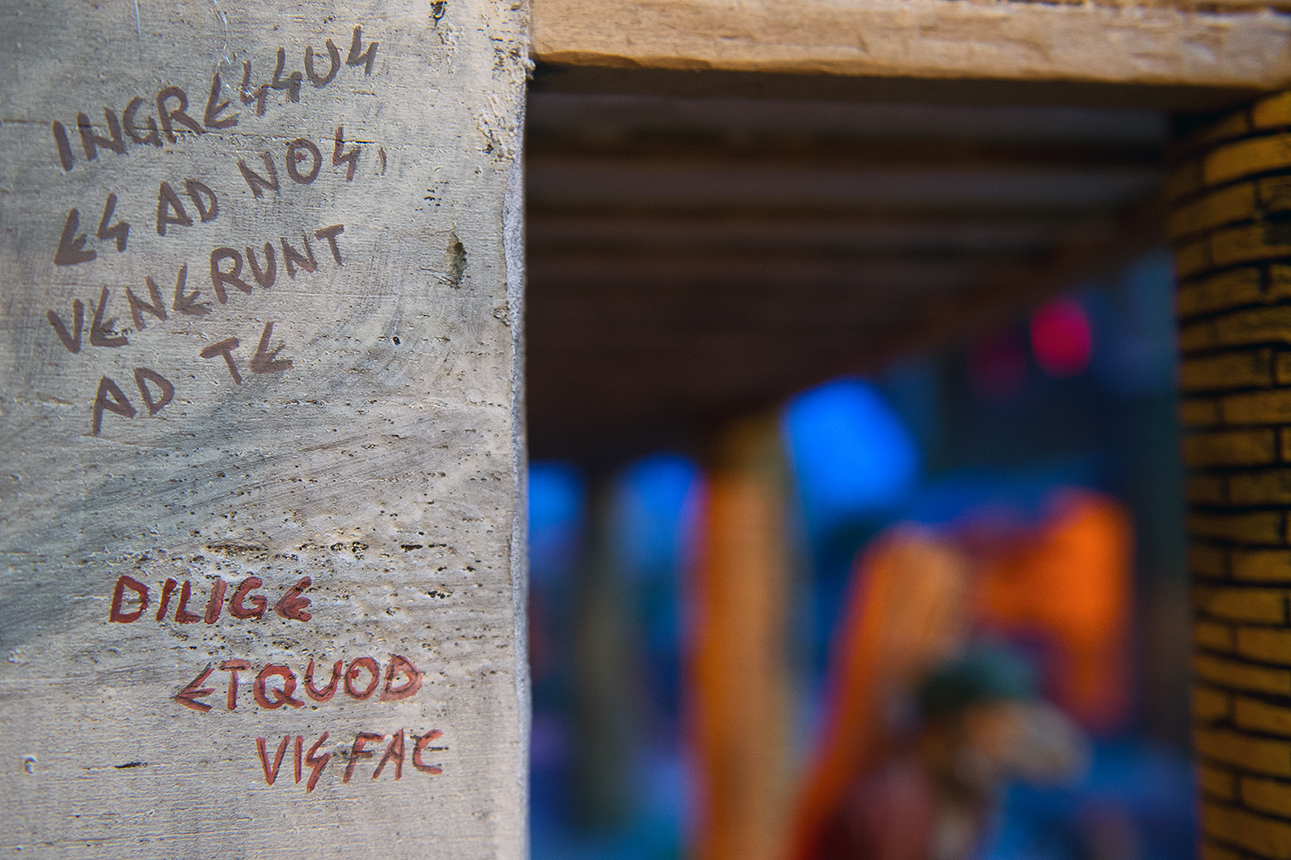 INGRESSUS
ES AD NOS,
VENERUNT
AD TE
DILIGE
ET QUOD
VIS FAC